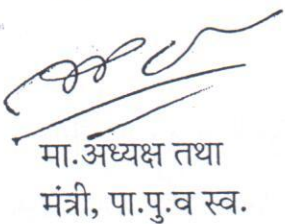 मा.अध्यक्ष तथा
मंत्री, पा.पु.व स्व.